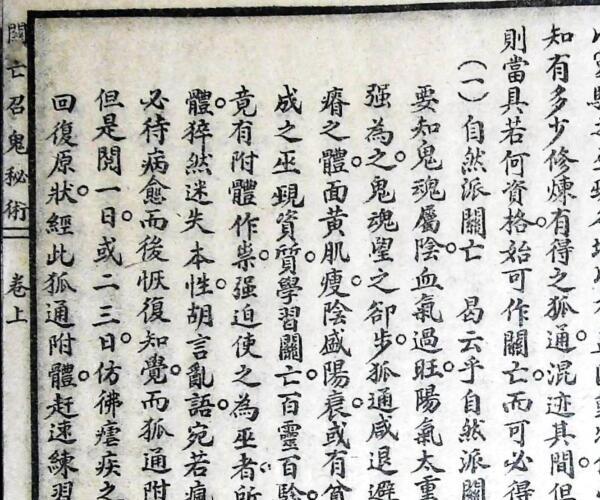 知有多少修煉有得之狐通。混迹其間。但
則當具若何資格。始可作關亡。而可必得
(一)自然派關亡 曷云乎自然派關
要知鬼魂屬陰。血氣過旺。陽氣太重
强為之。鬼魂望之卻步。狐通咸退避
瘠之體。面黄肌瘦。陰盛陽衰。或有
成之巫覡資質。學習關亡。百靈百驗
竟有附體作祟。强迫使之為巫者。所
體。猝然迷失本性。胡言亂語。宛若瘋
必待病愈而後恢復知覺。而狐通附
但是閱一日。或二三日。仿彿瘧疾之
回復原狀。經此狐通附體。赶速練習
關亡召鬼秘術 卷上